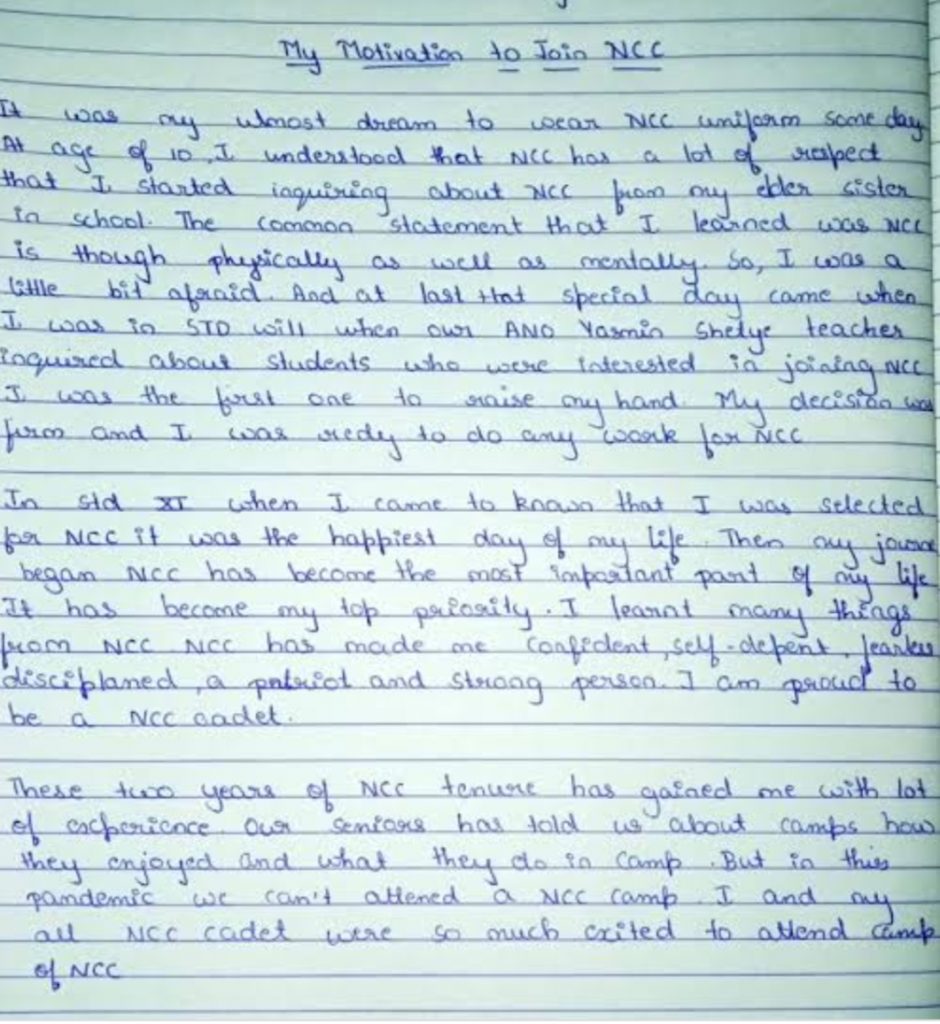 My Motivation to Join NCC
It was my utmost dream to wear NCC uniform some day
At age of 10, I understood that NCC has a lot of respect
that I started inquiring about NCC from my elder sister
in school. The common statement that I learned was NCC
is though physically as well as mentally. So, I was a
little bit afraid. And at last that special day came when
I was in STD will when our ANO Yasmin Shelye teacher
inquired about students who were interested in joining NCC
I was the first one to raise my hand. My decision was
firm and I was redy to do any work for NCC
In std XI when I came to known that I was selected
for NCC it was the happiest day of my life. Then my
began NCC has become the most important part of my life
It has become my top priority. I learnt many things
from NCC NCC has made me confident, self-depent, fearless
disciplaned, a patriot and strong person. I am proud to
be a NCC cadet.
These two years of NCC tenure has gained me with lot
of experience. Our seniors has told us about camps how
they enjoyed and what they do in camp. But in this
pandemic we can't attened a NCC camp. I and my
all NCC cadet were so much exited to attend camp
of NCC